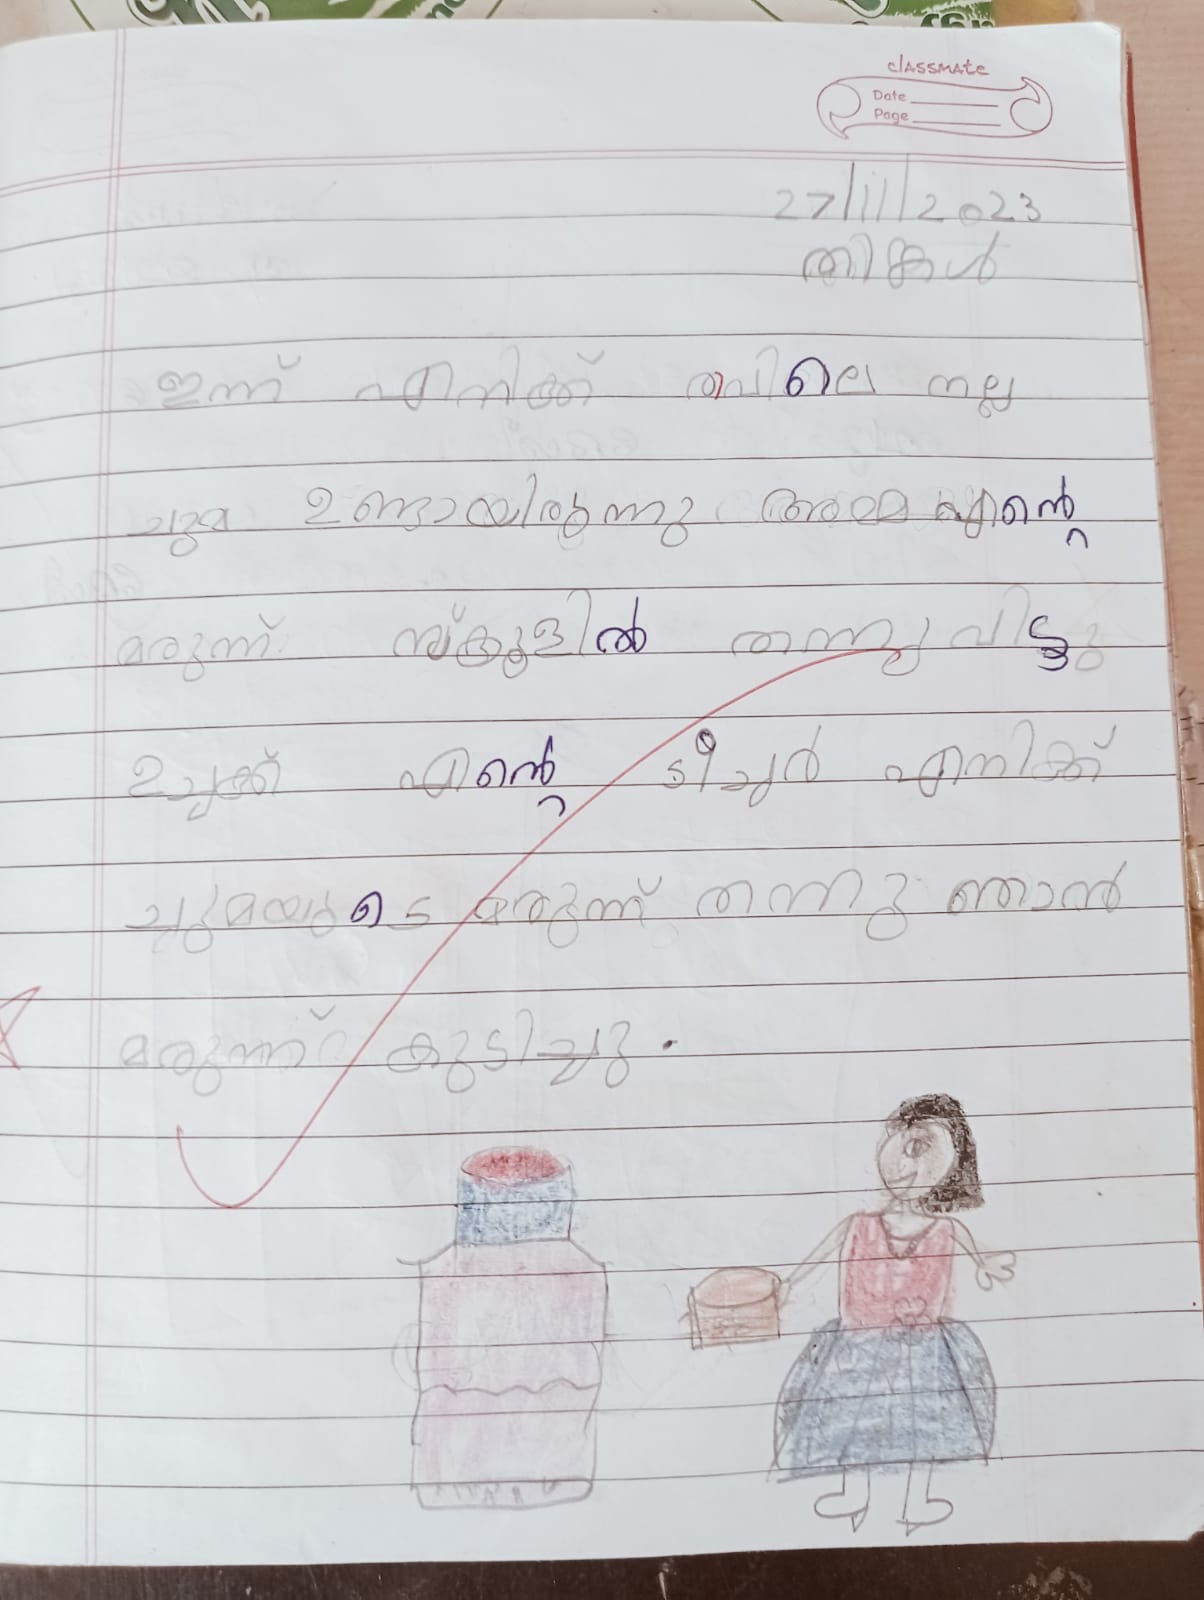 classmate
Date
Page
27/11/2023
തിങ്കൾ
ഇന്ന് എനിക്ക് രവിലെ നല്ല
ചുമ ഉണ്ടായിരുന്നു അമ്മ എന്റെ
മരുന്ന് സ്കുളിൽ തന്നു വിട്ടു
ഉച്ചക്ക് എന്റെ ടീച്ചർ എനിക്ക്
ചുമയുടെ മരുന്ന് തന്നു ഞാൻ
മരുന്ന് കുടിച്ചു.